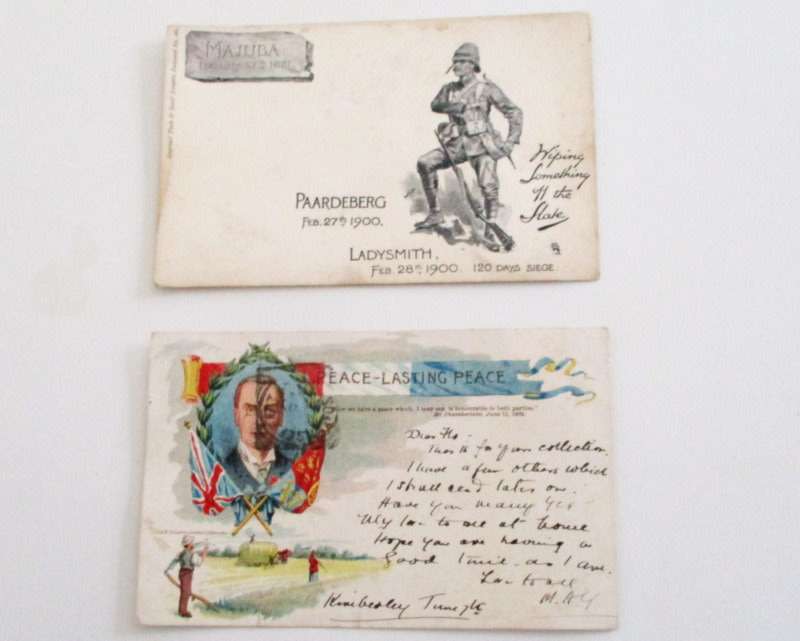 MAJUBA
PAARDEBERG
FEB. 27th 1900.
LADYSMITH.
FEB. 28th 1900. 120 DAYS SIEGE.
Wiping
Something
off the
Slate
PEACE–LASTING PEACE
we have a peace which, I may say is honourable to both parties."
Mr Chamberlain, June
Dear Flo:
for your collection.
I have a few others which
I shall send later on.
Have you many yet
My love to all at home
Hope you are having a
good time as I am.
Love to all
Kimberley June